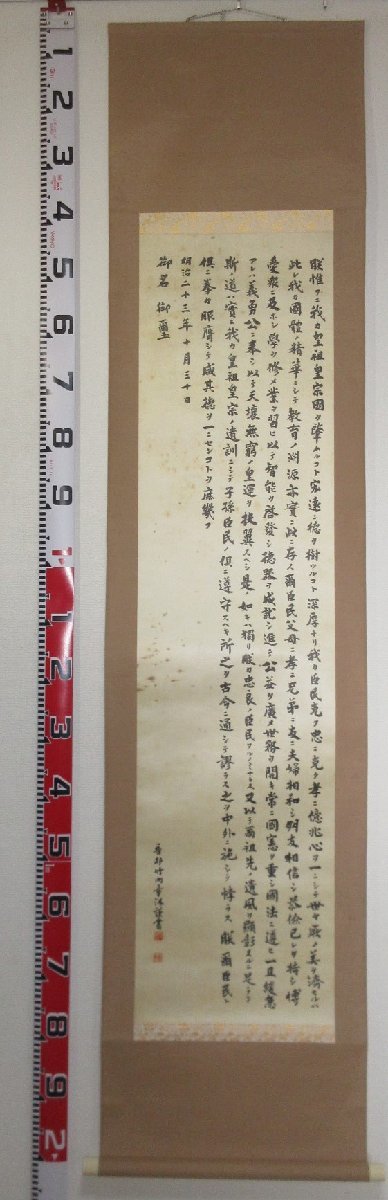 朕惟フニ我カ皇祖皇宗國ヲ肇ムルコト宏遠ニ德ヲ樹ツルコト深厚ナリ我カ臣民克ク忠ニ克ク孝ニ億兆心ヲ一ニシテ世々厥ノ美ヲ濟セルハ
此レ我カ國體ノ精華ニシテ教育ノ淵源亦實ニ此ニ存ス爾臣民父母ニ孝ニ兄弟ニ友ニ夫婦相和シ朋友相信シ恭儉己レヲ持シ博
愛衆ニ及ホシ學ヲ修メ業ヲ習ヒ以テ智能ヲ啓發シ德器ヲ成就シ進テ公益ヲ廣メ世務ヲ開キ常ニ國憲ヲ重シ國法ニ遵ヒ一旦緩急
アレハ義勇公ニ奉シ以テ天壤無窮ノ皇運ヲ扶翼スヘシ是ノ如キハ獨リ朕カ忠良ノ臣民タルノミナラス又以テ爾祖先ノ遺風ヲ顯彰スルニ足ラン
斯ノ道ハ實ニ我カ皇祖皇宗ノ遺訓ニシテ子孫臣民ノ俱ニ遵守スヘキ所之ヲ古今ニ通シテ謬ラス之ヲ中外ニ施シテ悖ラス朕爾臣民ト
俱ニ拳々服膺シテ咸其德ヲ一ニセンコトヲ庶幾フ
明治二十三年十月三十日
御名 御璽
謹書
1
2
3
4
5
6
7
8
9
1
1
2
3
4
5
6
7
8
9
2